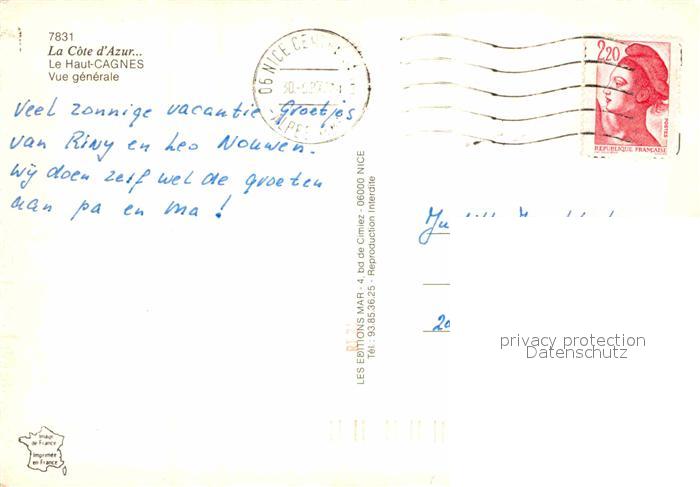 7831
La Côte d'Azur...
Le Haut-CAGNES
Vue générale
Veel zonnige vacantie - Groetjes
van Riny en Leo Nouwen.
Wij doen zelf wel de groeten
aan pa en ma!
06 NICE
ALPES
2,20
POSTES
REPUBLIQUE FRANÇAISE
LES EDITIONS MAR - 4, bd de Cimiez - 06000 NICE
Tél.: 93.85.36.25 - Reproduction Interdite
privacy protection
Datenschutz
Image
de France
Imprimée
en France